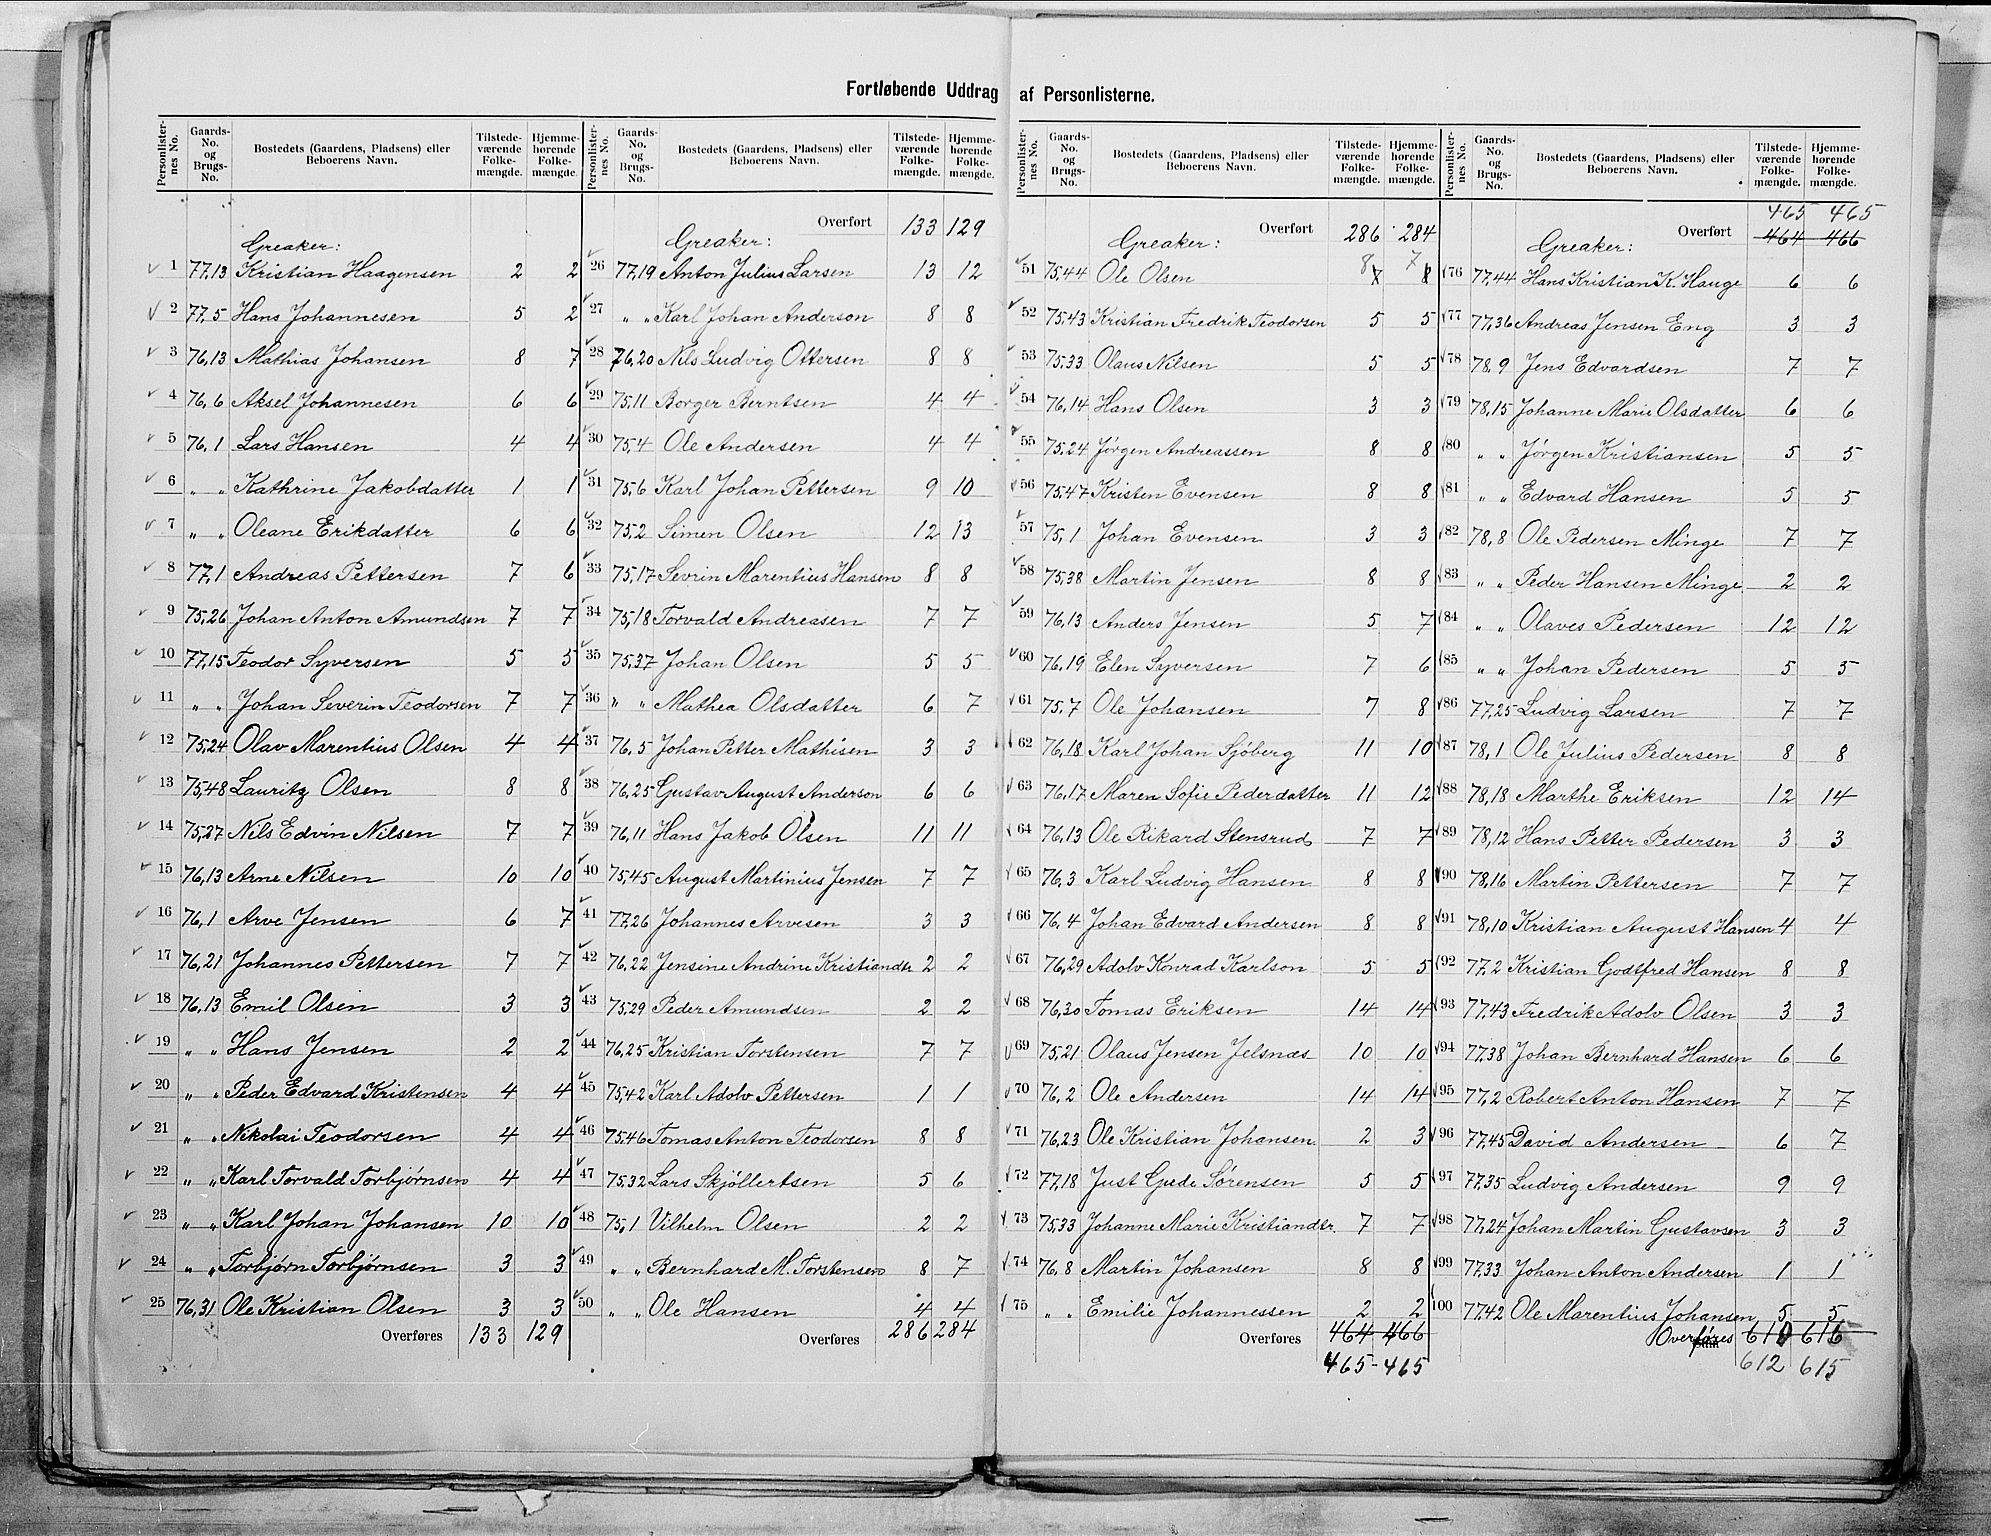 Fortløbende Uddrag af Personlisterne.
Personlisternes No. Gaards-No. og Brugs-No. Bostedets (Gaardens, Pladsens) eller Beboerens Navn. Tilstedeværende Folkemængde. Hjemmehørende Folkemængde.
Overført
Greaker:
1 77,13 Kristian Haagensen 2 2
2 77,5 Hans Johannesen 5 2
3 76,13 Mathias Johansen 8 7
4 76,6 Aksel Johannesen 6 6
5 76,1 Lars Hansen 4 4
6 " " Kathrine Jakobdatter 1 1
7 " " Oleane Erikdatter 6 6
8 77,1 Andreas Pettersen 7 6
9 75,26 Johan Anton Amundsen 7 7
10 77,15 Teodor Syversen 5 5
11 " " Johan Severin Teodorsen 7 7
12 75,24 Olav Marentius Olsen 4 4
13 75,48 Lauritz Olsen 8 8
14 75,27 Nils Edvin Nilsen 7 7
15 76,13 Arne Nilsen 10 10
16 76,1 Arve Jensen 6 7
17 76,21 Johannes Pettersen 7 7
18 76,13 Emil Olsen 3 3
19 " " Hans Jensen 2 2
20 " " Peder Edvard Kristensen 4 4
21 " " Nikolai Teodorsen 4 4
22 " " Karl Torvald Torbjørnsen 4 4
23 " " Karl Johan Johansen 10 10
24 " " Torbjørn Torbjørnsen 3 3
25 76,31 Ole Kristian Olsen 3 3
Overføres 133 129
Personlisternes No. Gaards-No. og Brugs-No. Bostedets (Gaardens, Pladsens) eller Beboerens Navn. Tilstedeværende Folkemængde. Hjemmehørende Folkemængde.
Overført 133 129
Greaker:
26 77,19 Anton Julius Larsen 13 12
27 " " Karl Johan Anderson 8 8
28 76,20 Nils Ludvig Ottersen 8 8
29 75,11 Borger Berntsen 4 4
30 75,4 Ole Andersen 4 4
31 75,6 Karl Johan Pettersen 9 10
32 75,2 Simen Olsen 12 13
33 75,17 Sevrin Marentius Hansen 8 8
34 75,18 Torvald Andreasen 7 7
35 75,37 Johan Olsen 5 5
36 " " Mathea Olsdatter 6 7
37 76,5 Johan Petter Mathisen 3 3
38 76,25 Gustav August Anderson 6 6
39 76,11 Hans Jakob Olsen 11 11
40 75,45 August Martinius Jensen 7 7
41 77,26 Johannes Arvesen 3 3
42 76,22 Jensine Andrine Kristiandtr 2 2
43 75,29 Peder Amundsen 2 2
44 76,25 Kristian Torstensen 7 7
45 75,42 Karl Adolv Pettersen 1 1
46 75,46 Tomas Anton Teodorsen 8 8
47 75,32 Lars Skjøllertsen 5 6
48 75,1 Vilhelm Olsen 2 2
49 " " Bernhard M. Torstensen 8 7
50 " " Ole Hansen 4 4
Overføres 286 284
Personlisternes No. Gaards-No. og Brugs-No. Bostedets (Gaardens, Pladsens) eller Beboerens Navn. Tilstedeværende Folkemængde. Hjemmehørende Folkemængde.
Overført 286 284
Greaker: 8 7
51 75,44 Ole Olsen 7 8
52 75,43 Kristian Fredrik Teodorsen 5 5
53 75,33 Olaus Nilsen 5 5
54 76,14 Hans Olsen 3 3
55 75,24 Jørgen Andreassen 8 8
56 75,47 Kristen Evensen 8 8
57 75,1 Johan Evensen 3 3
58 75,38 Martin Jensen 8 8
59 76,13 Anders Jensen 5 7
60 76,19 Elen Syversen 7 6
61 75,7 Ole Johansen 7 8
62 76,18 Karl Johan Sjöberg 11 10
63 76,17 Maren Sofie Pederdatter 11 12
64 76,13 Ole Rikard Stensrud 7 7
65 76,3 Karl Ludvig Hansen 8 8
66 76,4 Johan Edvard Andersen 8 8
67 76,29 Adolv Konrad Karlson 5 5
68 76,30 Tomas Eriksen 14 14
69 75,21 Olaus Jensen Jelsnæs 10 10
70 76,2 Ole Andersen 14 14
71 76,23 Ole Kristian Johansen 2 3
72 77,18 Just Gude Sørensen 5 5
73 75,33 Johanne Marie Kristiandtr. 7 7
74 76,8 Martin Johansen 8 8
75 " " Emilie Johannessen 2 2
Overføres 464 466
465 - 465
Personlisternes No. Gaards-No. og Brugs-No. Bostedets (Gaardens, Pladsens) eller Beboerens Navn. Tilstedeværende Folkemængde. Hjemmehørende Folkemængde.
465 465
Overført 464 466
Greaker:
76 77,44 Hans Kristian K. Hauge 6 6
77 77,36 Andreas Jensen Eng 3 3
78 78,9 Jens Edvardsen 7 7
79 78,15 Johanne Marie Olsdatter 6 6
80 " " Jørgen Kristiansen 5 5
81 " " Edvard Hansen 5 5
82 78,8 Ole Pedersen Minge 7 7
83 " " Peder Hansen Minge 2 2
84 " " Olaves Pedersen 12 12
85 " " Johan Pedersen 5 5
86 77,25 Ludvig Larsen 7 7
87 78,1 Ole Julius Pedersen 8 8
88 78,18 Marthe Eriksen 12 14
89 78,12 Hans Petter Pedersen 3 3
90 78,16 Martin Pettersen 7 7
91 78,10 Kristian August Hansen 4 4
92 77,2 Kristian Godtfred Hansen 8 8
93 77,43 Fredrik Adolv Olsen 3 3
94 77,38 Johan Bernhard Hansen 6 6
95 77,2 Robert Anton Hansen 7 7
96 77,45 David Andersen 6 7
97 77,35 Ludvig Andersen 9 9
98 77,24 Johan Martin Gustavsen 3 3
99 77,33 Johan Anton Andersen 1 1
100 77,42 Ole Marentius Johansen 5 5
Overføres 616
612 615